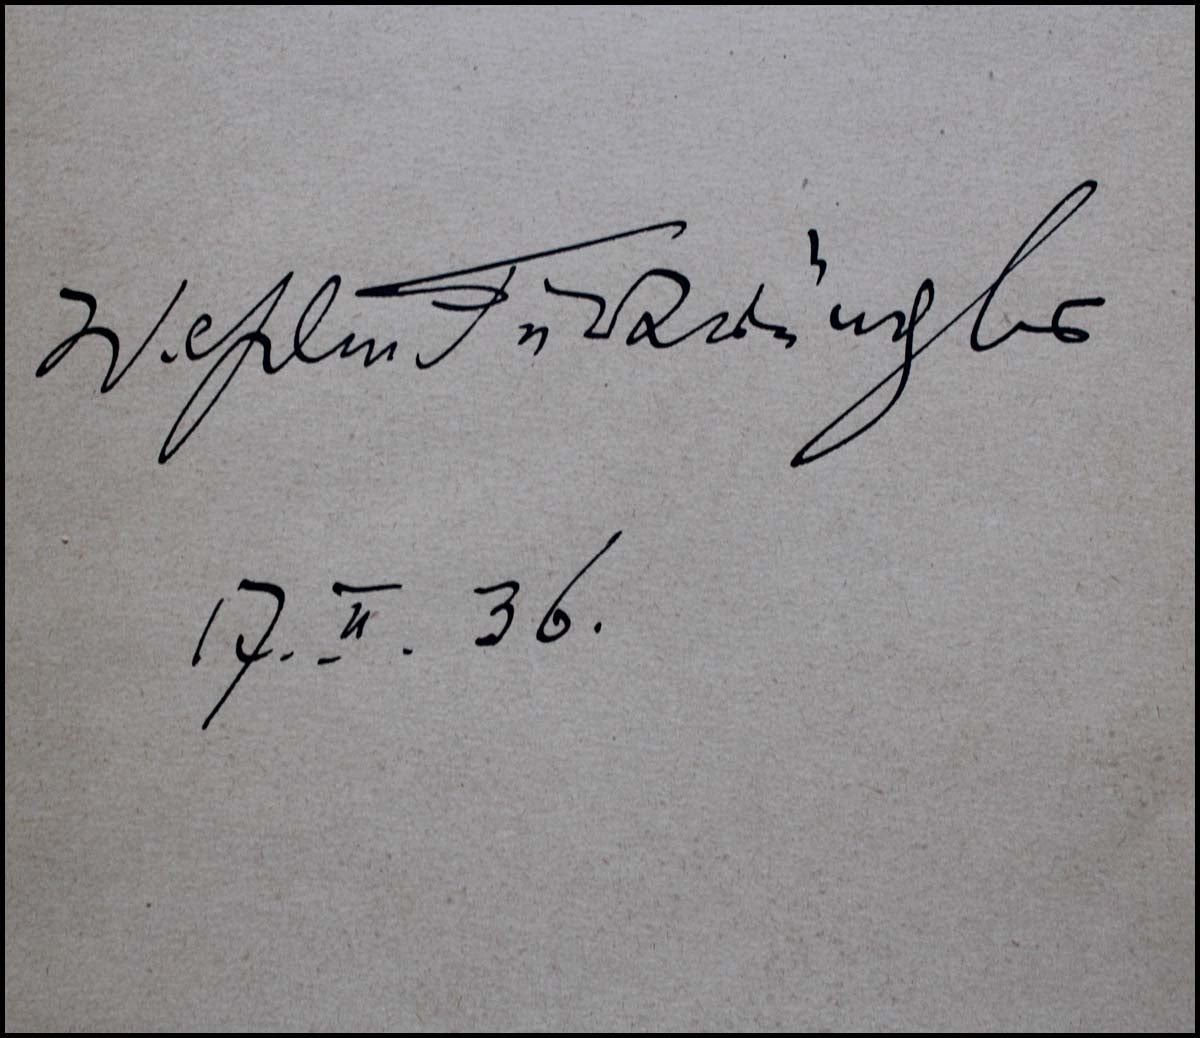 Wilhelm Furtwängler
17. II. 36.